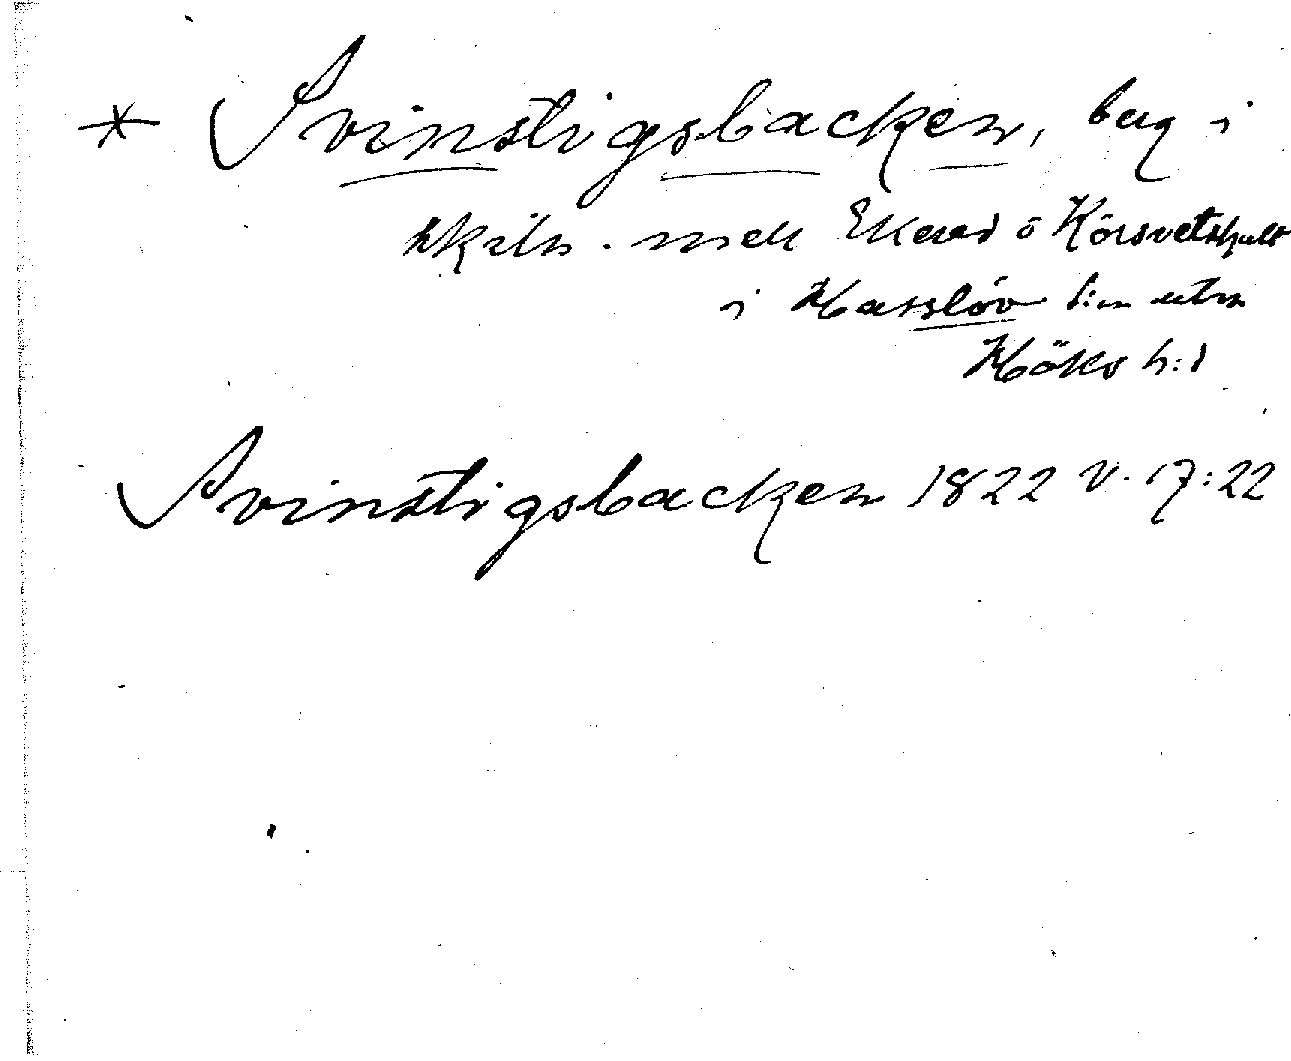 * Svinstigsbacken, berg i
skiln. mell Ekered o Körsvetshult
i Hasslöv s:n utm
Höks h:d
Svinstigsbacken 1822 V. 17:22